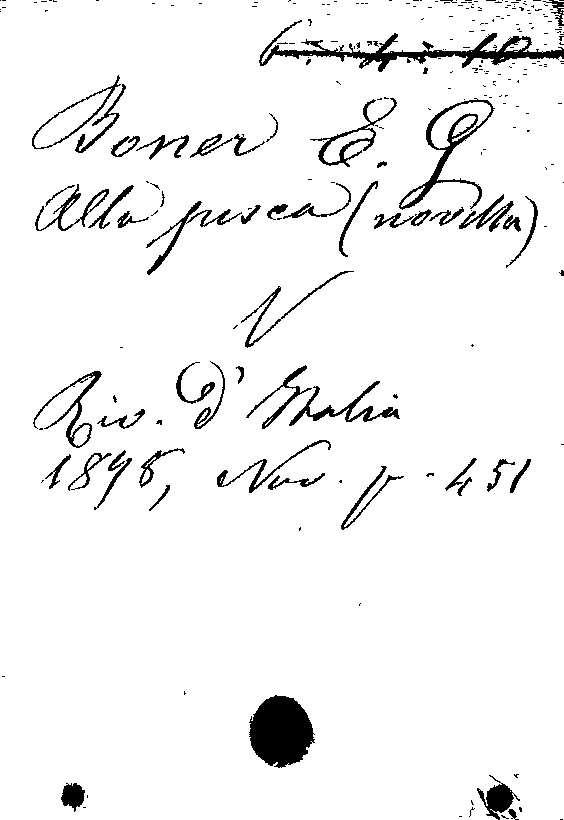 6. 4. 10
Boner E. G
Alla pesca (novella)
V
Riv. d' Italia
1898, Nov. p. 451